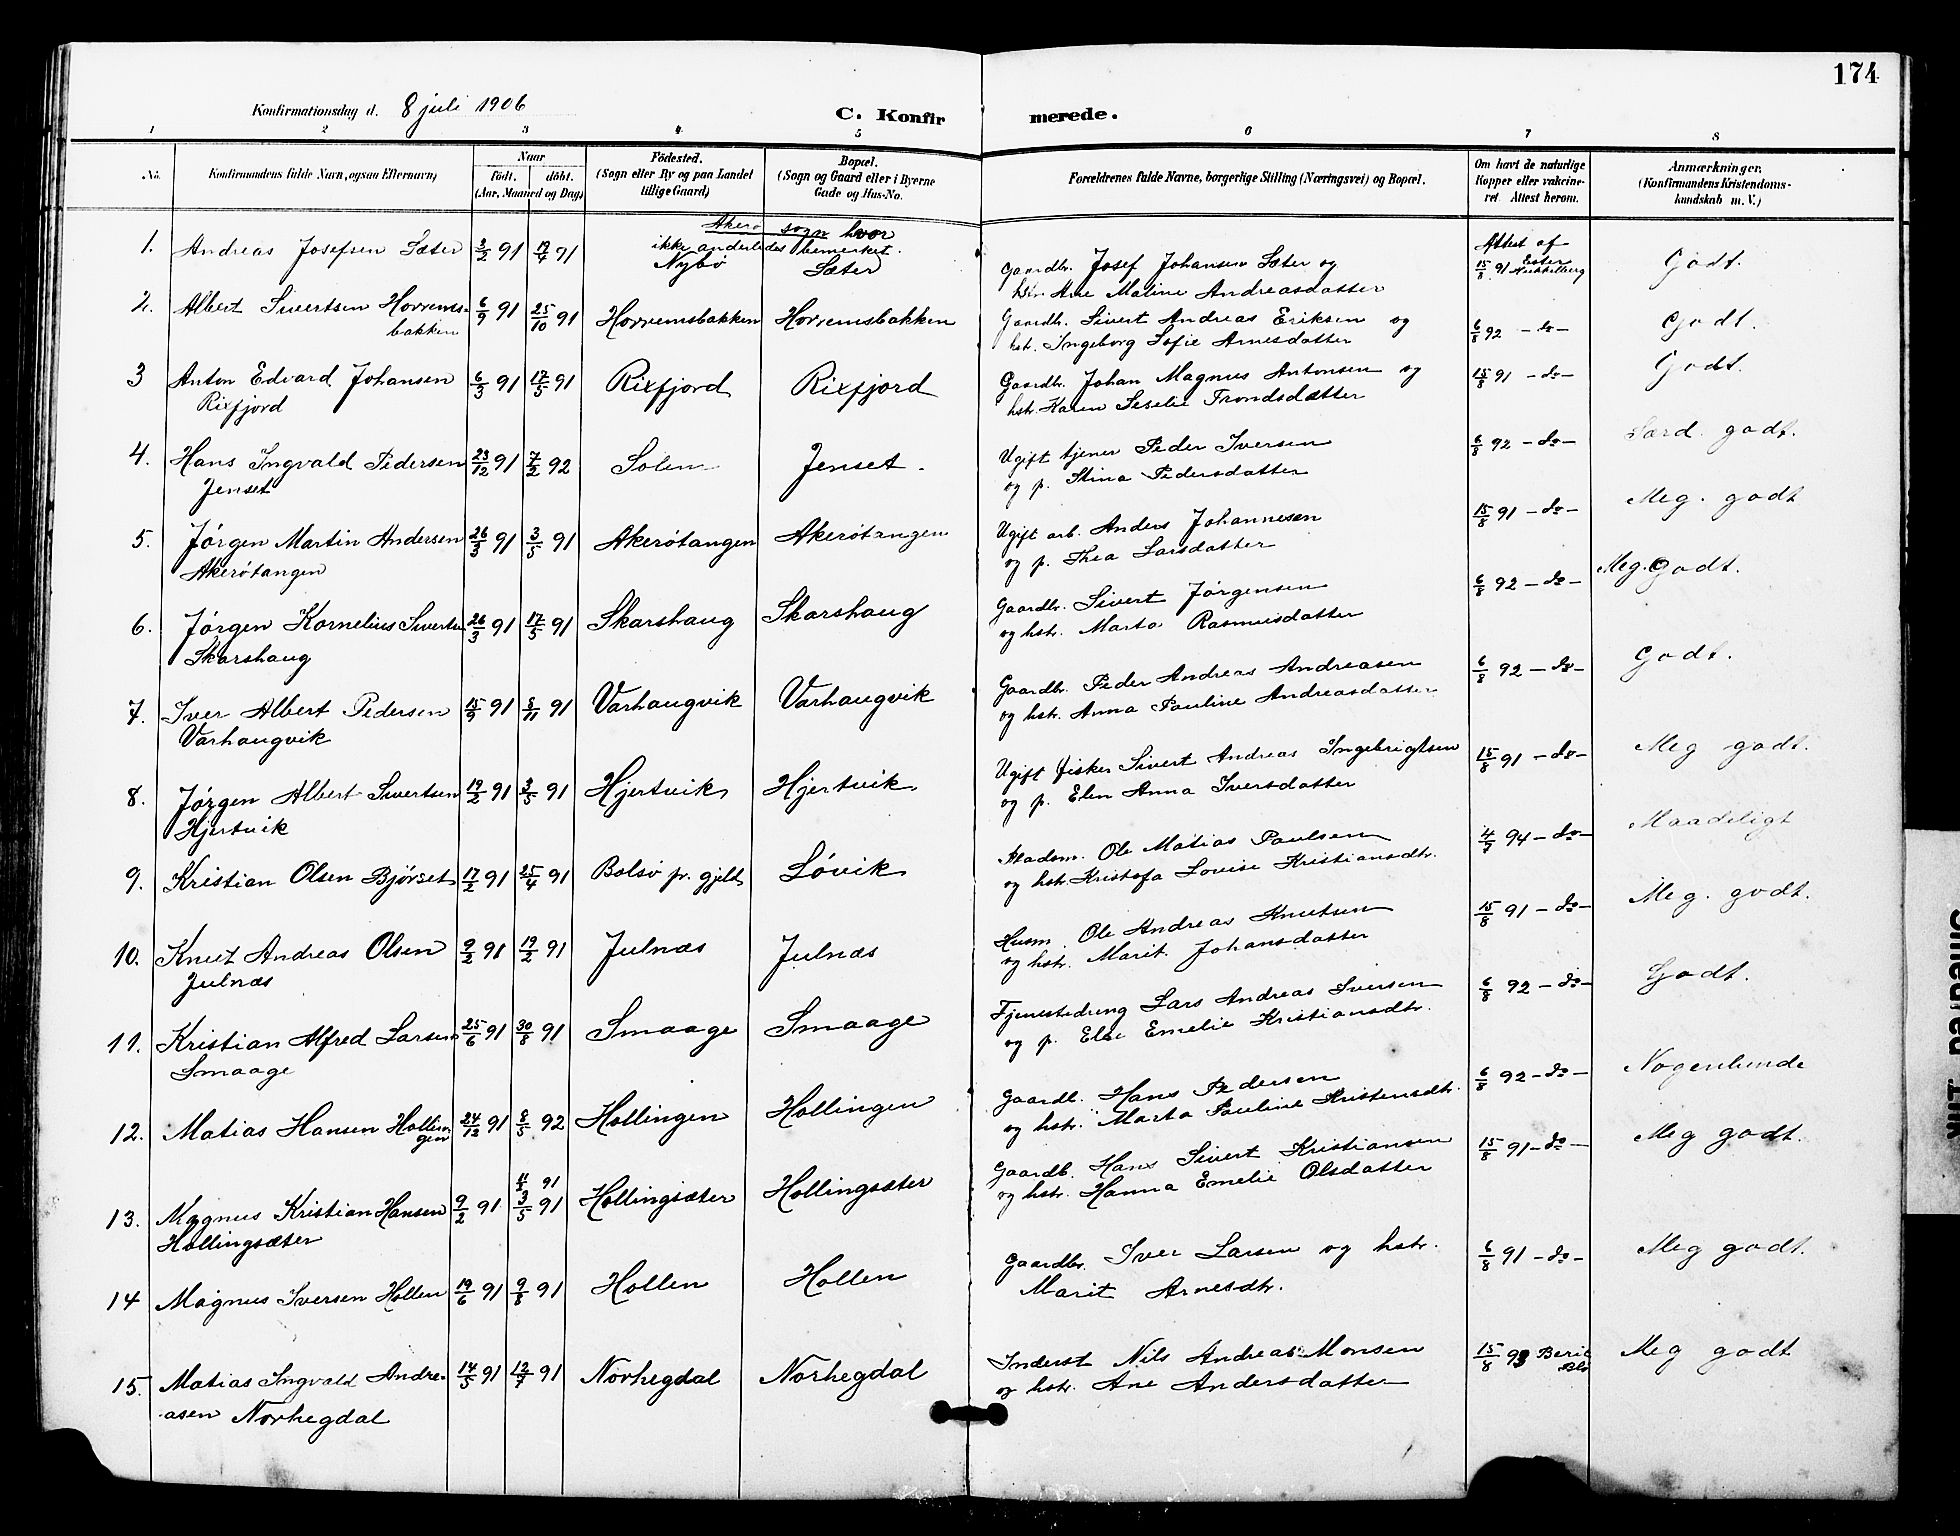 174
Konfirmationsdag d. 8 juli 1906
C. Konfirmerede.
1 2 3 4 5 6 7 8
No. Konfirmandens fulde Navn, ogsaa Efternavn) Naar født. døbt. (Aar, Maaned og Dag) Fødested. (Sogn eller By og paa Landet tillige Gaard) Bopæl. (Sogn og Gaard eller i Byerne Gade og Hus-No. Forældrenes fulde Navne, borgerlige Stilling (Næringsvei) og Bopæl. Om havt de naturlige Kopper eller vakcineret. Attest herom. Anmærkninger. (Konfirmandens Kristendomskundskab m. V.)
Akerø sogn hvor
ikke anderledes bemerket.
1. Andreas Josefsen Sæter 3/2 91 19/4 91 Nybø Sæter Gaardbr. Josef Johansen Sæter og Attest af 15/8 91 Ester Nekkelberg Godt.
hstr. Ane Maline Andreasdatter
2. Albert Sivertsen Horrems- 6/9 91 25/10 91 Horremsbakken Horremsbakken Gaardbr. Sivert Andreas Eriksen og 6/8 92 - do - Godt.
bakken hstr. Ingeborg Sofie Arnesdatter
3 Anton Edvard Johansen 6/3 91 17/5 91 Rixfjord Rixfjord Gaardbr. Johan Magnus Antonsen og 15/8 91 - do - Godt.
Rixfjord hstr. Karen Seselie Trondsdatter
4. Hans Ingvald Pedersen 23/12 91 7/2 92 Solem Jenset. Ugift tjener Peder Iversen 6/8 92 - do - Særd. godt.
Jenset og p. Stina Pedersdatter
5. Jørgen Martin Andersen 26/3 91 3/5 91 Akerøtangen Akerøtangen Ugift arb. Anders Johannesen 15/8 91 - do - Meg. godt
Akerøtangen og p. Thea Larsdatter
6. Jørgen Kornelius Sivertsen 26/3 91 17/5 91 Skarshaug Skarshaug Gaardbr. Sivert Jørgensen 6/8 92 - do - Meg. Godt.
Skarshaug og hstr. Marta Rasmusdatter
7. Iver Albert Pedersen 15/9 91 8/11 91 Varhaugvik Varhaugvik Gaardbr. Peder Andreas Andreasen 6/8 92 - do - Godt.
Varhaugvik og hstr. Anna Pauline Andreasdatter
8. Jørgen Albert Sivertsen 19/2 91 3/5 91 Hjertvik Hjertvik Ugift fisker Sivert Andreas Ingebrigtsen 15/8 91 - do - Meg godt.
Hjertvik og p. Elen Anna Iversdatter
9. Kristian Olsen Bjørset 17/2 91 25/4 91 Bolsø pr. gjeld Løvik Ole Matias Paulsen 4/7 94 - do - Maadeligt
og hstr. Kristofa Lovise Kristiansdtr.
10. Knut Andreas Olsen 9/2 91 19/2 91 Julnæs Julnæs Husm. Ole Andreas Knutsen 15/8 91 - do - Meg. godt.
Julnæs og hstr. Marit Johansdatter
11. Kristian Alfred Larsen 25/6 91 30/8 91 Smaage Smaage Tjenestedreng Lars Andreas Iversen 6/8 92 - do - Godt.
Smaage og p. Else Emelie Kristiansdtr.
12. Matias Hansen Hollin- 24/12 91 8/5 92 Hollingen Hollingen Gaardb. Hans Pedersen 6/8 92 - do - Nogenlunde
gen og hstr. Marta Pauline Kristensdtr.
13. Magnus Kristian Hansen 9/2 91 3/5 91 Hollingsæter Hollingsæter Gaardb. Hans Sivert Kristiansen 15/8 91 - do - Meg godt.
Hollingsæter og hstr. Hanna Emelie Olsdatter
14 Magnus Iversen Hollen 19/6 91 9/8 91 Hollen Hollen Gaardbr. Iver Larsen og hstr. 6/8 91 - do - Meg godt.
Marit Arnesdtr.
15. Matias Ingvald Andre- 14/5 91 12/7 91 Norhegdal Norhegdal Inderst Nils Andreas Monsen 15/8 93 Meg godt
asen Norhegdal og hstr. Ane Andersdatter